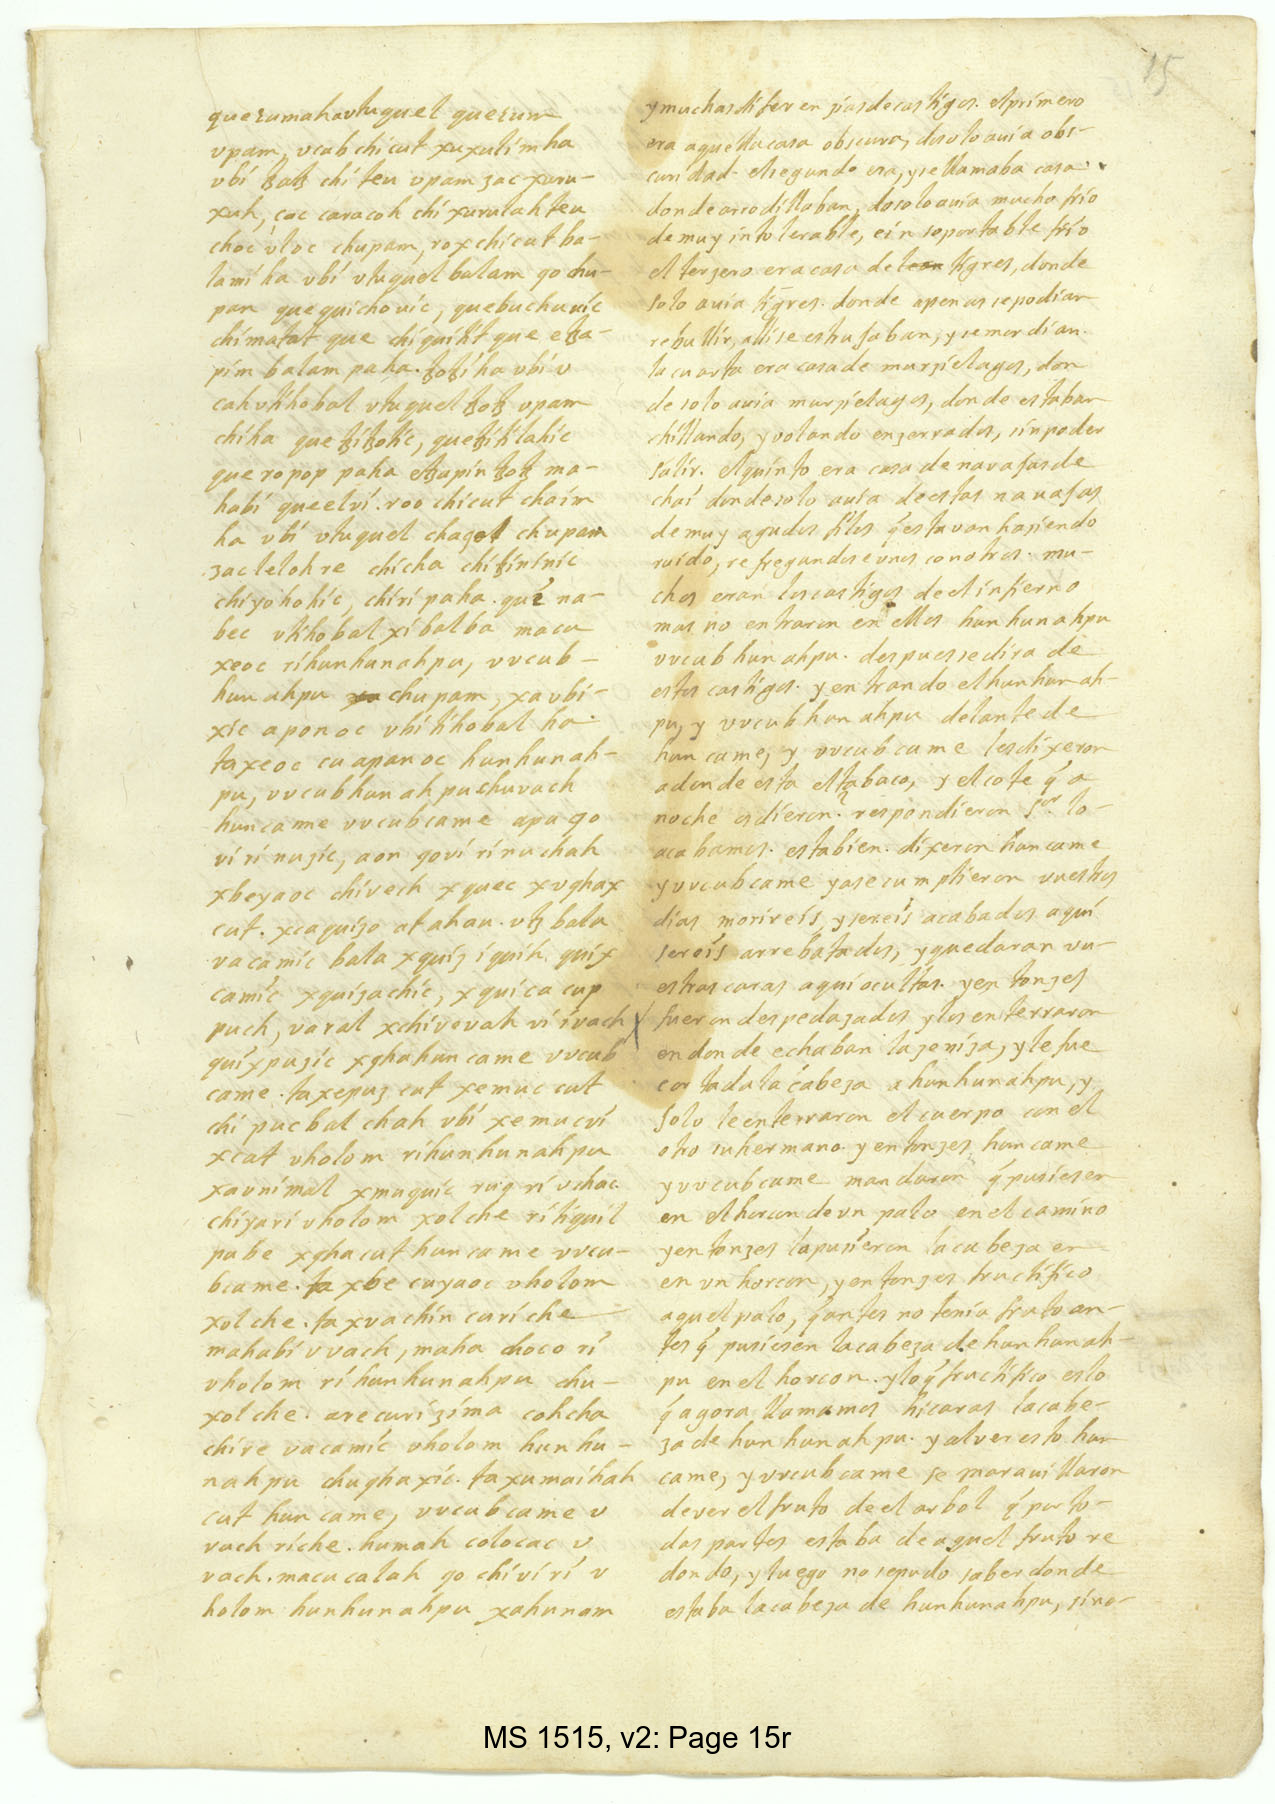 15
quezumaha vtuquel quezum
vpam, vcab chicut xuxulim ha
vbi ꜩatꜩ chi teu vpam zac xuru-
xuh, cac caracoh chi xurulah teu
choc vloc chupam, rox chicut ba-
lami ha vbi vtuquel balam qo chu-
pan quequichouic, quebuchuuic
chimatat que chiquitit que etza-
pim balam paha. ꜩoꜩi ha vbi v
cah vtihobal vtuquel ꜩoꜩ vpam
chiha queꜩiꜩotic, queꜩitilahic
que ropop paha etzapin ꜩoꜩ ma-
habi queelvi. roo chicut chaim
ha vbi vtuquel chaqel chupam
zacleloh re chicha chiꜩininic
chiyohohic, chiri paha. quí na-
bec vtihobal xibalba macu
xeoc rihunhunahpu, vvcub-
hunahpu chupam, xa vbi-
xic aponoc vbi tihobal ha.
ta xeoc cu apanoc hunhunah-
pu, vvcubhunahpu chuvach
huncame vvcubcame apa qo
vi ri nuzic, aon qovi ri nuchah
xbeyaoc chivech xquec xvqhax
cut. xcaquizo at ahau. vtz bala
vacamic bala xquiz iquih. quix
camic xquizachic, xquicacup
puch, varal xchivevah vi ivach
quixpuzic xqhahuncame vvcub
came. ta xepuz cut xemuc cut
chi pucbal chah vbi xemucvi
xcat vholom rihunhunahpu
xavnimal xmuquic ruq ri vchac.
chiyari vholom xolche ri tiquil
pabe xqhacut huncame vvcu-
bcame. ta xbe cuyaoc vholom
xolche. ta xvachin curiche
mahabi vvach, maha choco ri
vholom ri hunhunahpu chu-
xolche. are curi zima cohcha
chire vacamic vholom hunhu-
nahpu chuqhaxic. ta xumaihah
cut huncame, vvcubcame v
vach riche. humah colocac v
vach. macucalah qo chivi ri v
holom hunhunahpu xahunam
y muchas diferenzias de castigos. el primero
era aquella casa obscura, do solo auia obs-
curidad- el segundo era, y se llamaba casa
donde arrodillaban, do solo auia mucho frio
de muy intolerable, e in soportable frio
el terzero era casa de leon tigres, donde
solo auia tigres. donde apenas se podian
rebullir, alli se estrujaban, y se mordian.
la cuarta era casa de murzielagos, don
de solo auia murzielagos, donde estaban
chillando, y volando enzerrados, sin poder
salir. el quinto era casa de navajas de
chai donde solo auia de estas nauajas
de muy agudos filos q̃ estavan haziendo
ruido, refregandose unos con otros. mu-
chos eran los castigos de el infierno
mas no entraron en ellos hunhunahpu
vvcubhunahpu. despues se dira de
estos castigos. y entrando el hunhunah-
pu, y vvcubhunahpu delante de
huncame, y vvcubcame les dixeron
adonde esta el tabaco, y el cote q̃ a
noche os dieron? respondieron Sor. lo
acabamos. esta bien. dixeron huncame
y vvcubcame ya se cumplieron vuestros
dias morireis, y sereis acabados aqui
sereis arrebatados, y quedaran vu-
estras caras aqui ocultas. y entonzes
fueron despedazados y los enterraron
en donde echaban la zeniza, y le fue
cortada la cabeza a hunhunahpu, y
solo le enterraron el cuerpo con el
otro su hermano. y entonzes huncame
y vvcubcame mandaron q̃ pusiesen
en el horcon de vn palo en el camino
y entonzes la pusieron la cabeza en
en vn horcon, y entonzes fructifico
aquel palo, q̃ antes no tenia fruto an-
tes q̃ pusiesen la cabeza de hunhunah-
pu en el horcon. y lo q̃ fructifico es lo
q̃ agora llamamos hicaras la cabe-
za de hunhunahpu. y al ver esto hun
came, y vvcubcame se marauillaron
de ver el fruto de el arbol q̃ por to-
das partes estaba de aquel fruto re
dondo, y luego no se pudo saber donde
estaba la cabeza de hunhunahpu, sino-
MS 1515, v2: Page 15r